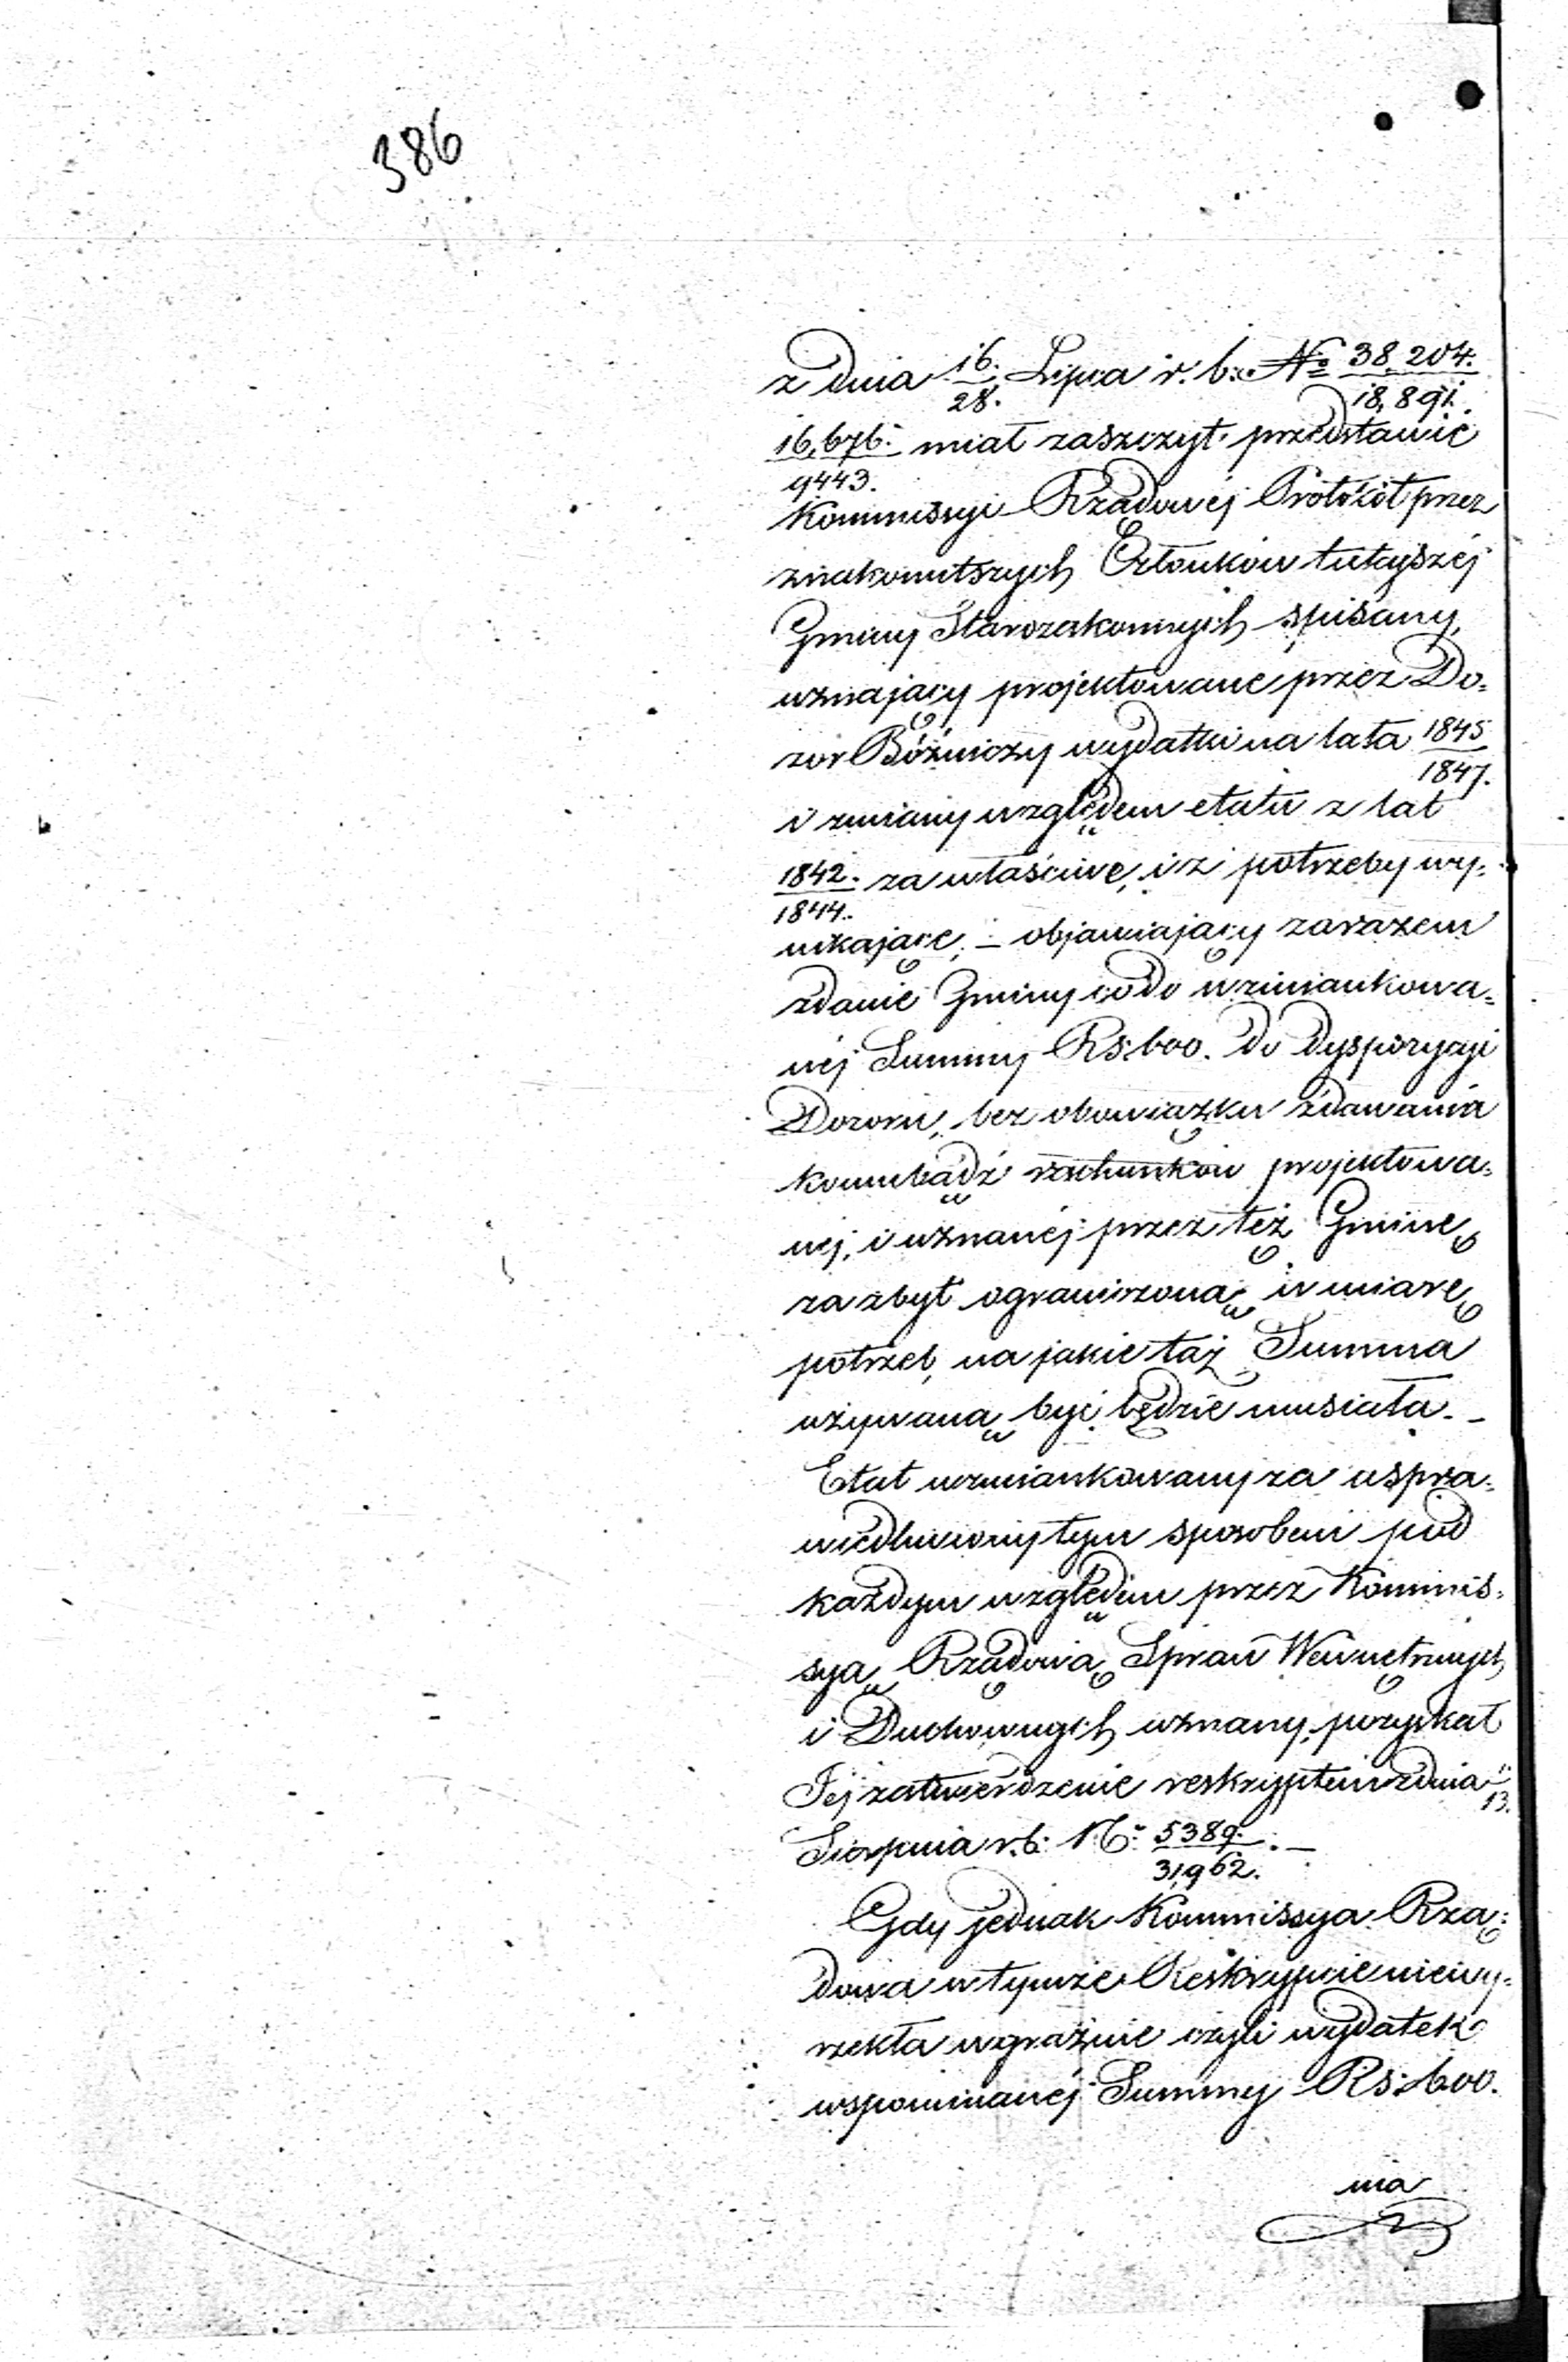 386
z dnia 16./28. Lipca r. b. No 38,204./18,891.
16,676./9443. miał zaszczyt przedstawić
Kommissyi Rządowéj Protokół przez
znakomitszych Członków tutejszéj
Gminy Starozakonnych spisany,
uznający projektowane przez Do=
zór Bóżniczy wydatki na lata 1845/1847.
i zmiany względem etatu z lat
1842./1844. za właściwe, i z potrzeby wy=
nikające, – objawiający zarazem
zdanie Gminy co do wzmiankowa=
néj Summy Rs: 600. do dyspozycyi
Dozoru, bez obowiązku zdawania
komubądź rachunków projektowa=
néj, i uznanéj przez też Gminę
za zbyt ograniczoną, w miarę
potrzeb, na jakie taż Summa
używaną być będzie musiała. –
Etat wzmiankowany za uspra=
wiedliwiony tym sposobem pod
każdym względem przez Kommis=
syą Rządową Spraw Wewnętrznych
i Duchownych uznany, pozyskał
Jéj zatwierdzenie reskryptem z dnia 13.
Sierpnia r. b. No 5389./31,962. –
Gdy jednak Kommissya Rzą=
dowa w tymże Reskrypcie nie wy=
rzekła wyraźnie czyli wydatek
wspominanéj Summy Rs: 600.
ma